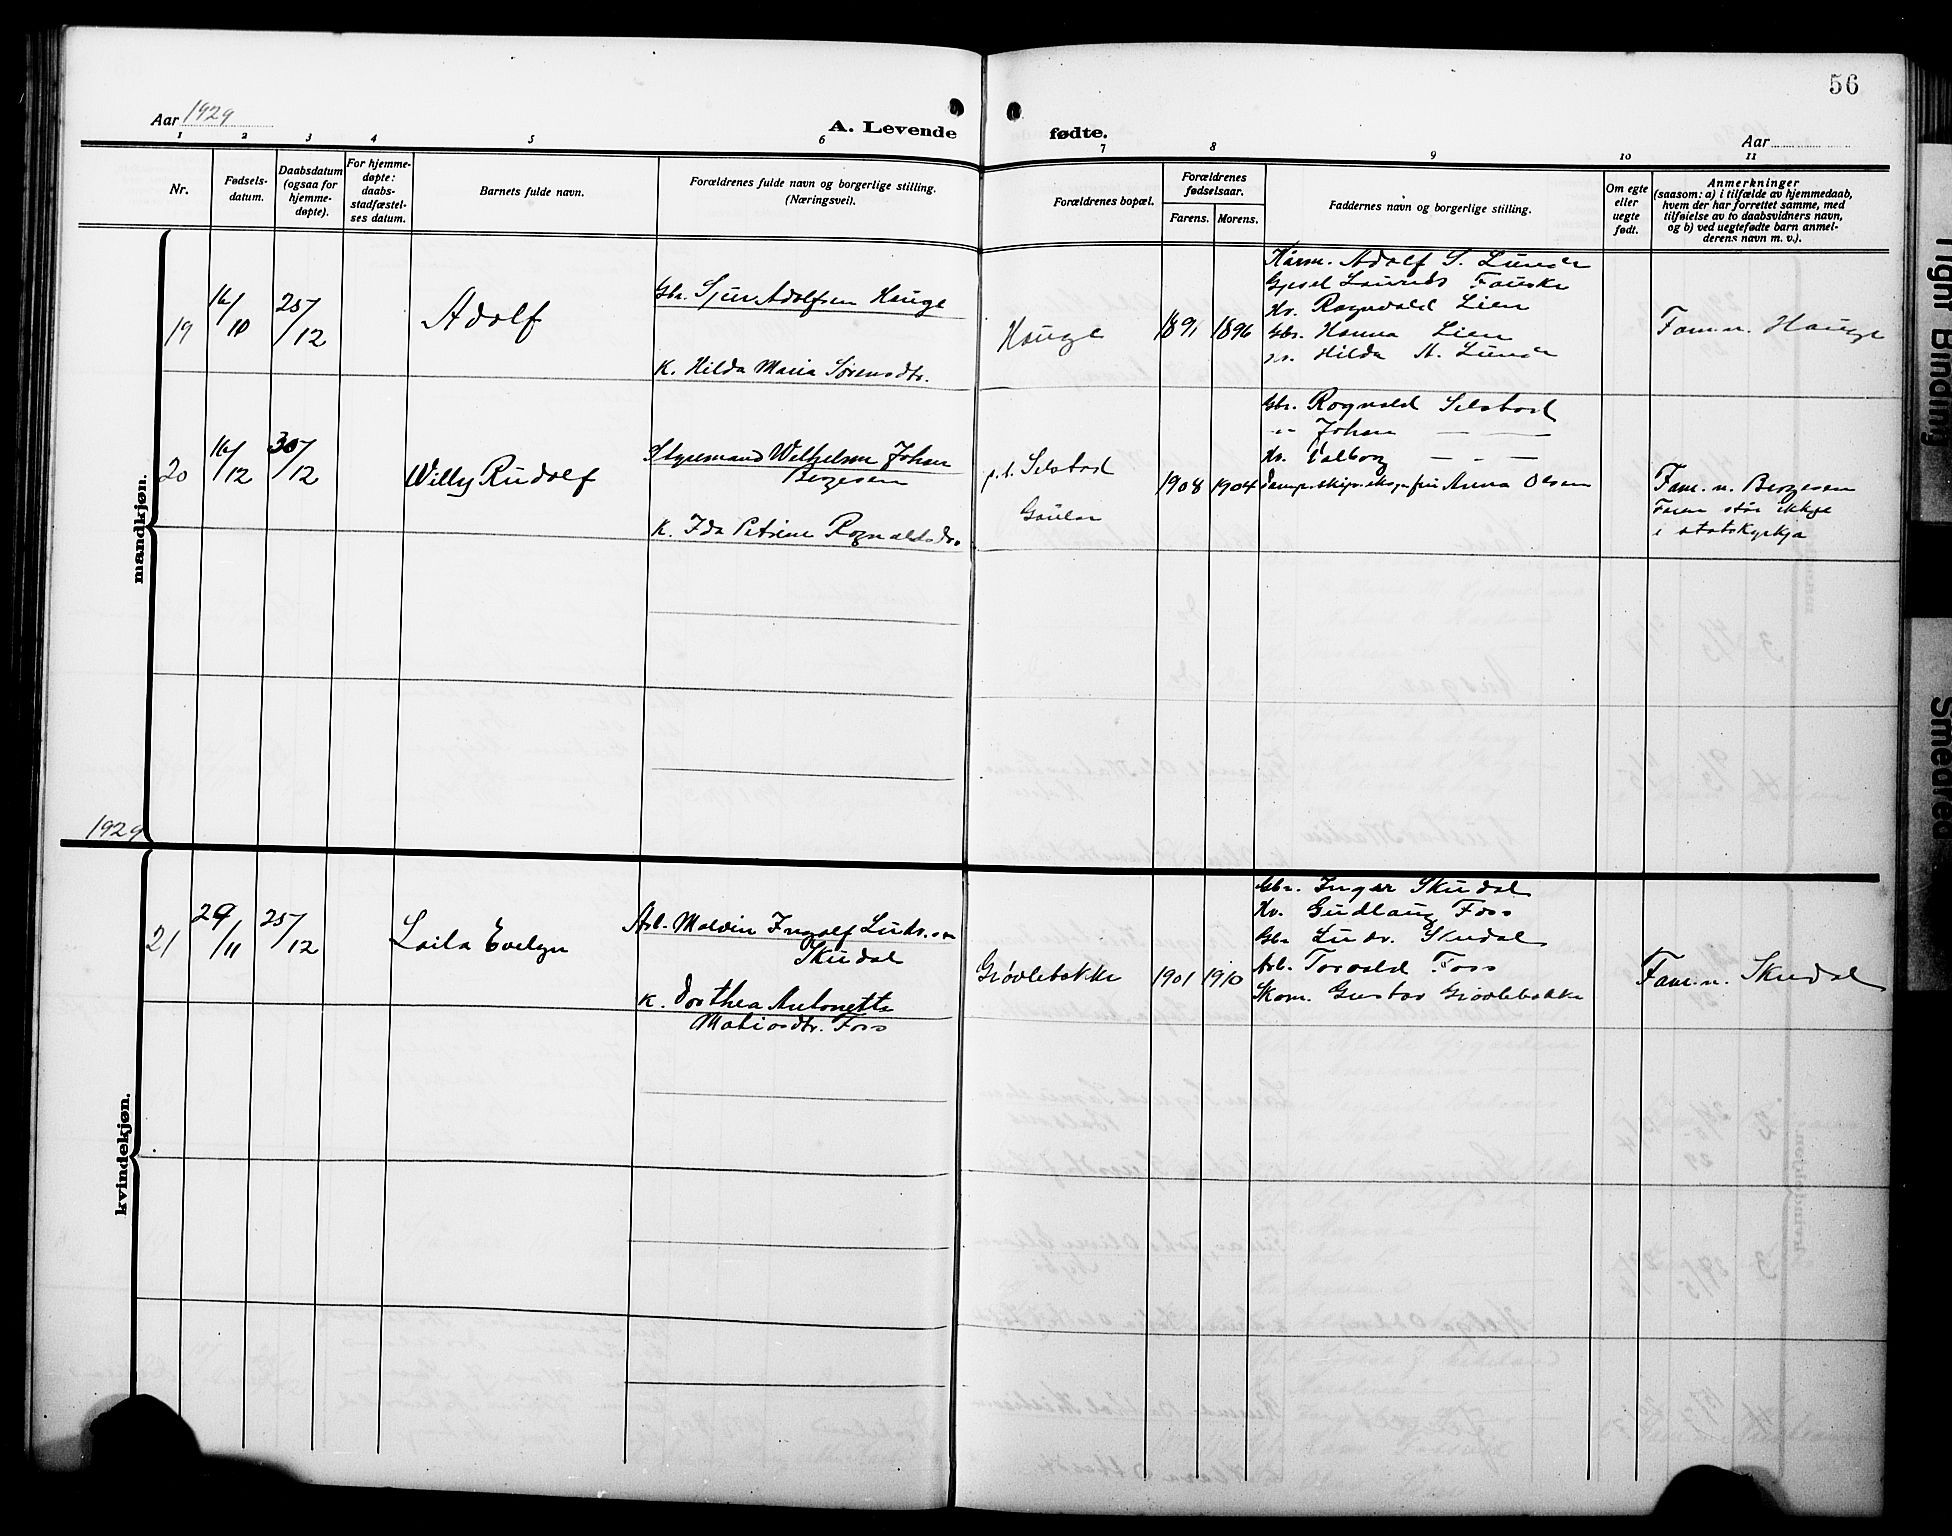 56
Aar 1929
A. Levende fødte.
Aar
1 2 3 4 5 6 7 8 9 10 11
Nr.
Fødsels-
datum.
Daabsdatum
(ogsaa for
hjemme-
døpte).
For hjemme-
døpte:
daabs-
stadfæstel-
ses datum.
Barnets fulde navn.
Forældrenes fulde navn og borgerlige stilling.
(Næringsvei).
Forældrenes bopæl.
Forældrenes
fødselsaar.
Farens. Morens.
Faddernes navn og borgerlige stilling.
Om egte
eller
uegte
født.
Anmerkninger
(saasom: a) i tilfælde av hjemmedaab,
hvem der har forrettet samme, med
tilføielse av to daabsvidners navn,
og b) ved uegtefødte barn anmel-
derens navn m. v.).
mandkjøn.
19
16/10
25/12
Adolf
Gbr. Sjur Adolfsen Hauge
K. Hilda Maria Sørensdtr.
Hauge
1891 1896
Kårm. Adolf S. Lunde
Gjesel Laurids Fauske
Kv. Ragnvald Lien
Gbr. Hanna Lien
Hilda A. Lunde
Fam.n. Hauge
20
16/12
30/12
Willy Rudolf
Styrmand Wilhelm Johan
Bergesen
K. Ida Petrine Rognaldsdr.
p.t. Selstad
Gaular
1908 1904
Gbr. Rognald Selstad
" Johan — —
Kv. Valborg — - —
Anna Olsen
Fam. n. Bergesen
Faren står ikkje
i statskyrkja
1929
kvindekjøn.
21
29/11
25/12
Laila Evelyn
Arb. Malvin Ingolf Ludv.sen
Skudal
K. Dorthea Antonette
Matiasdtr. Foss
Grøvlebakke
1901 1910
Gbr. Inger Skudal
Kv. Gudlaug Foss
Gbr Ludv. Skudal
Arb. Torvald Foss
Skom. Gustav Grøvlebakke
Fam.n. Skudal
Tight Binding
Smeared